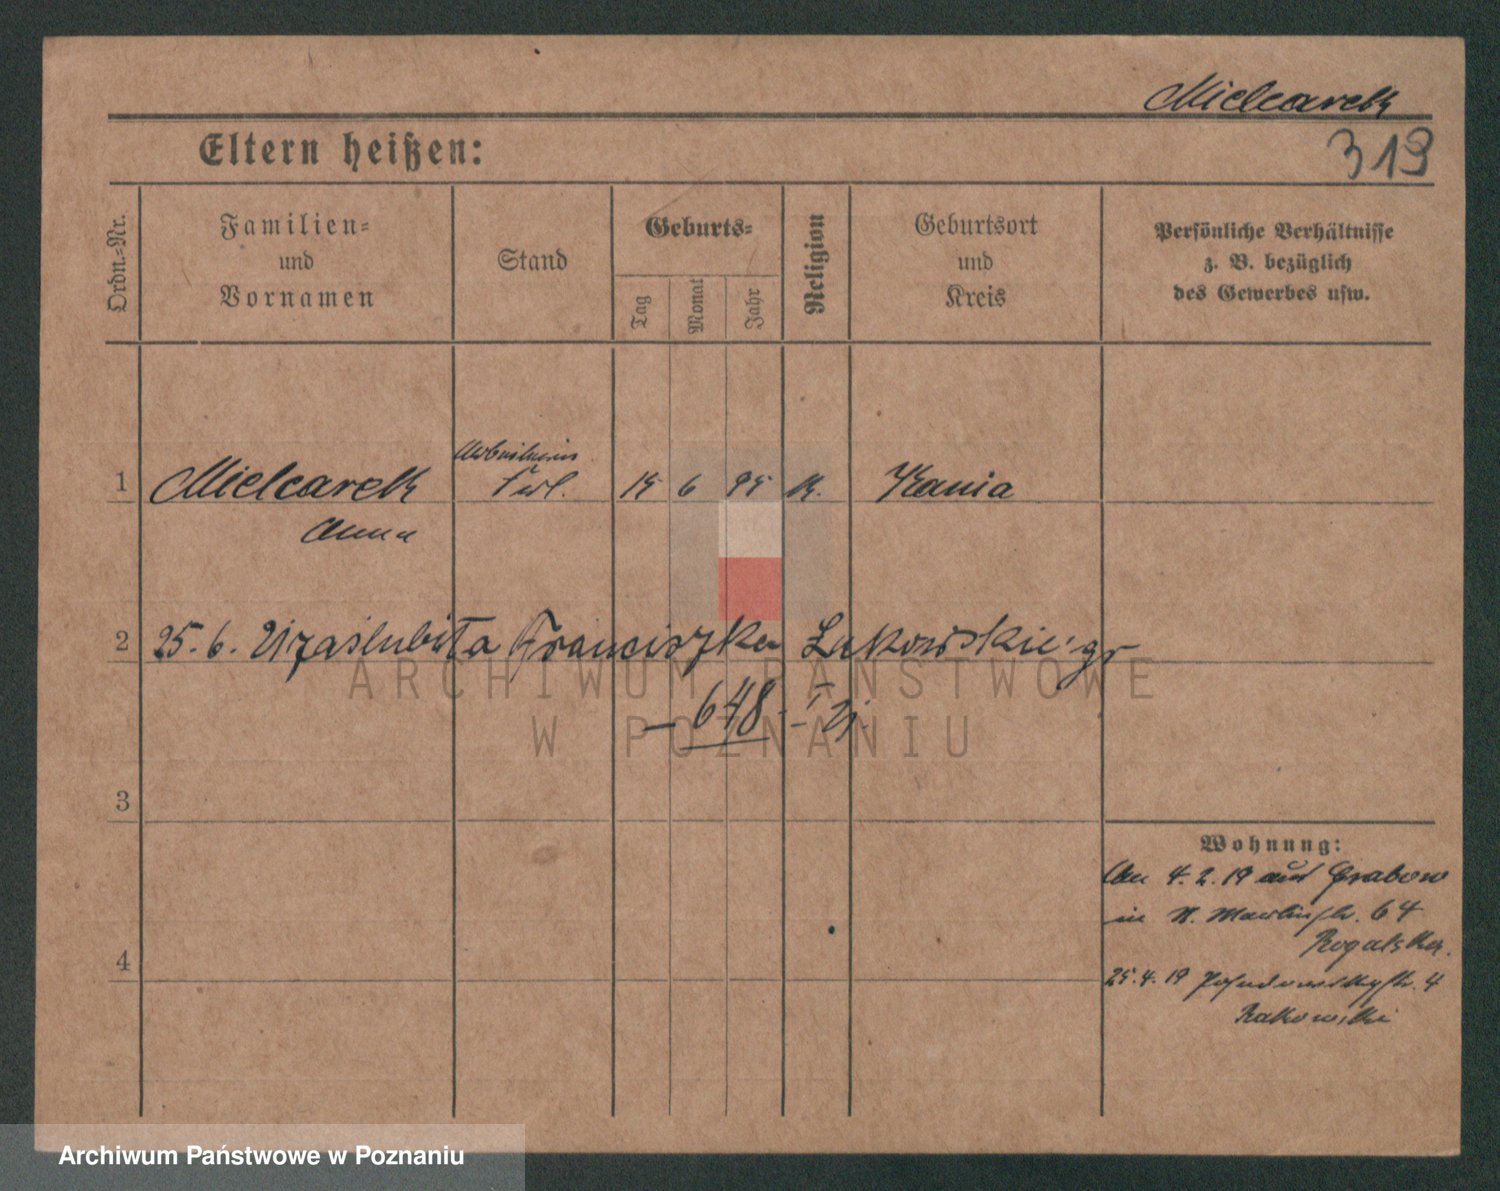 Mielcarek
319
Eltern heißen:
Ordn.-Nr.
Familien-
und
Vornamen
Stand
Geburts-
Tag
Monat
Jahr
Religion
Geburtsort
und
Kreis
Persönliche Verhältnisse
z. B. bezüglich
des Gewerbes usw.
1 Mielcarek Arbeiterin 15 6 95 K. Kania
Anna
2 25.6. Franciszka Lukowskiego
648
3
Wohnung:
4. 2. 19 aus Grabow
in N. 64
4
25. 4. 19 4
ARCHIWUM PAŃSTWOWE
W POZNANIU
Archiwum Państwowe w Poznaniu